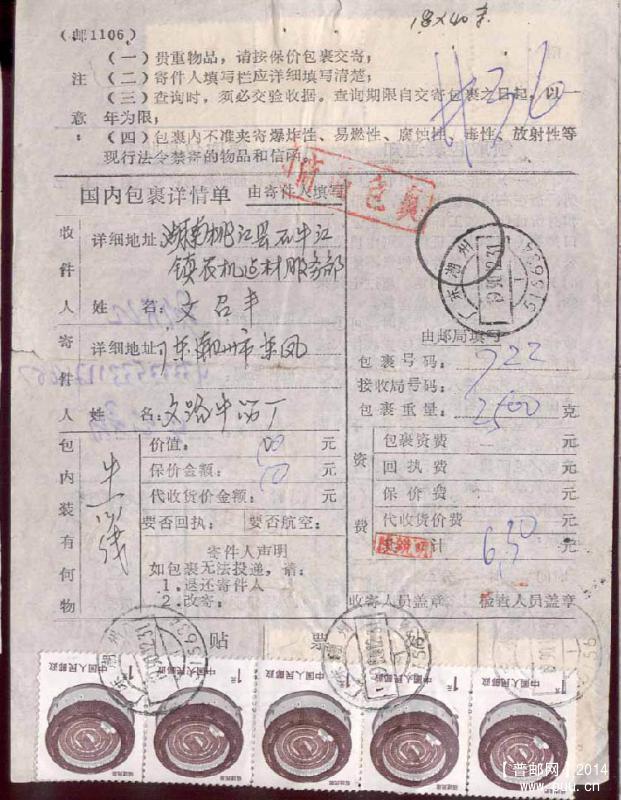 18×40支
(邮1106)
(一)贵重物品,请按保价包裹交寄;
注 (二)寄件人填写栏应详细填写清楚;
(三)查询时,须必交验收据。查询期限自交寄包裹之日起,以一
意 年为限;
: (四)包裹内不准夹寄爆炸性、易燃性、腐蚀性、毒性、放射性等
现行法令禁寄的物品和信函。
国内包裹详情单 由寄件人填写
收件人 详细地址 湖南桃江县石牛江
镇农机
材服务部
姓 名: 文召丰
寄件人 详细地址 广东潮州市东凤
姓 名:
由邮局填写
包裹号码: 722
接收局号码:
包裹重量: 2500 克
包内装有何物
价值: 元
保价金额: 元
代收货价金额: 元
要否回执: 要否航空:
寄件人声明
如包裹无法投递,请:
1.退还寄件人
2.改寄:
资费
包裹资费 元
回执费 元
保价费 元
代收货价费 元
计 6.50 元
收寄人员盖章 检查人员盖章
贴 票
广东潮州
515634
中国人民邮政 1元
中国人民邮政 1元
中国人民邮政 1元
中国人民邮政 1元
中国人民邮政 1元
福建民居
福建民居
福建民居
福建民居
福建民居
【普邮网】2014
www.puu.cn